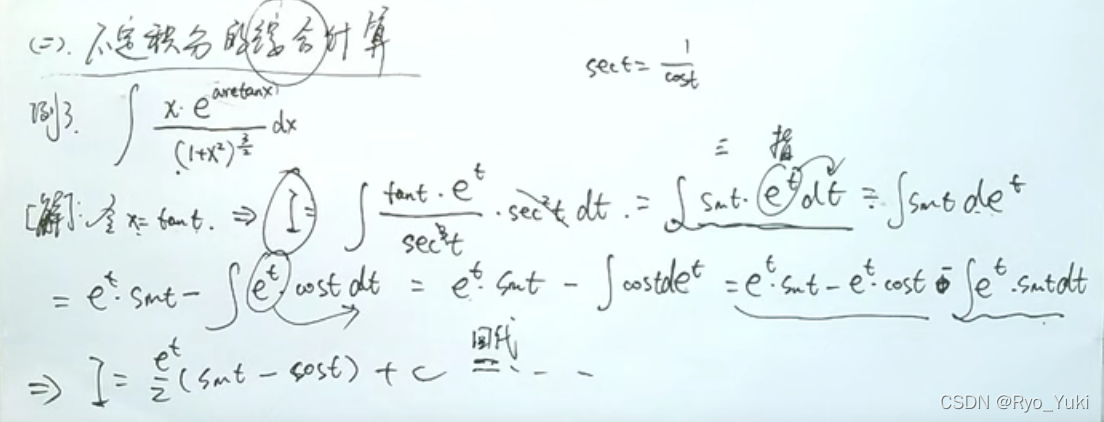 (二). 不定积分的综合计算
sect = 1/cost
例3. ∫ x·e^{arctanx} / (1+x²)^{3/2} dx
三 指
[解]: 令 x = tant. ⇒ I = ∫ tant·e^t / sec³t · sec²t dt. = ∫ sint·e^t dt = ∫ sint de^t
= e^t·sint − ∫ e^t·cost dt = e^t·sint − ∫ cost de^t = e^t·sint − e^t·cost − ∫ e^t·sint dt
回代
⇒ I = e^t/2 (sint − cost) + C = · - -
CSDN @Ryo_Yuki